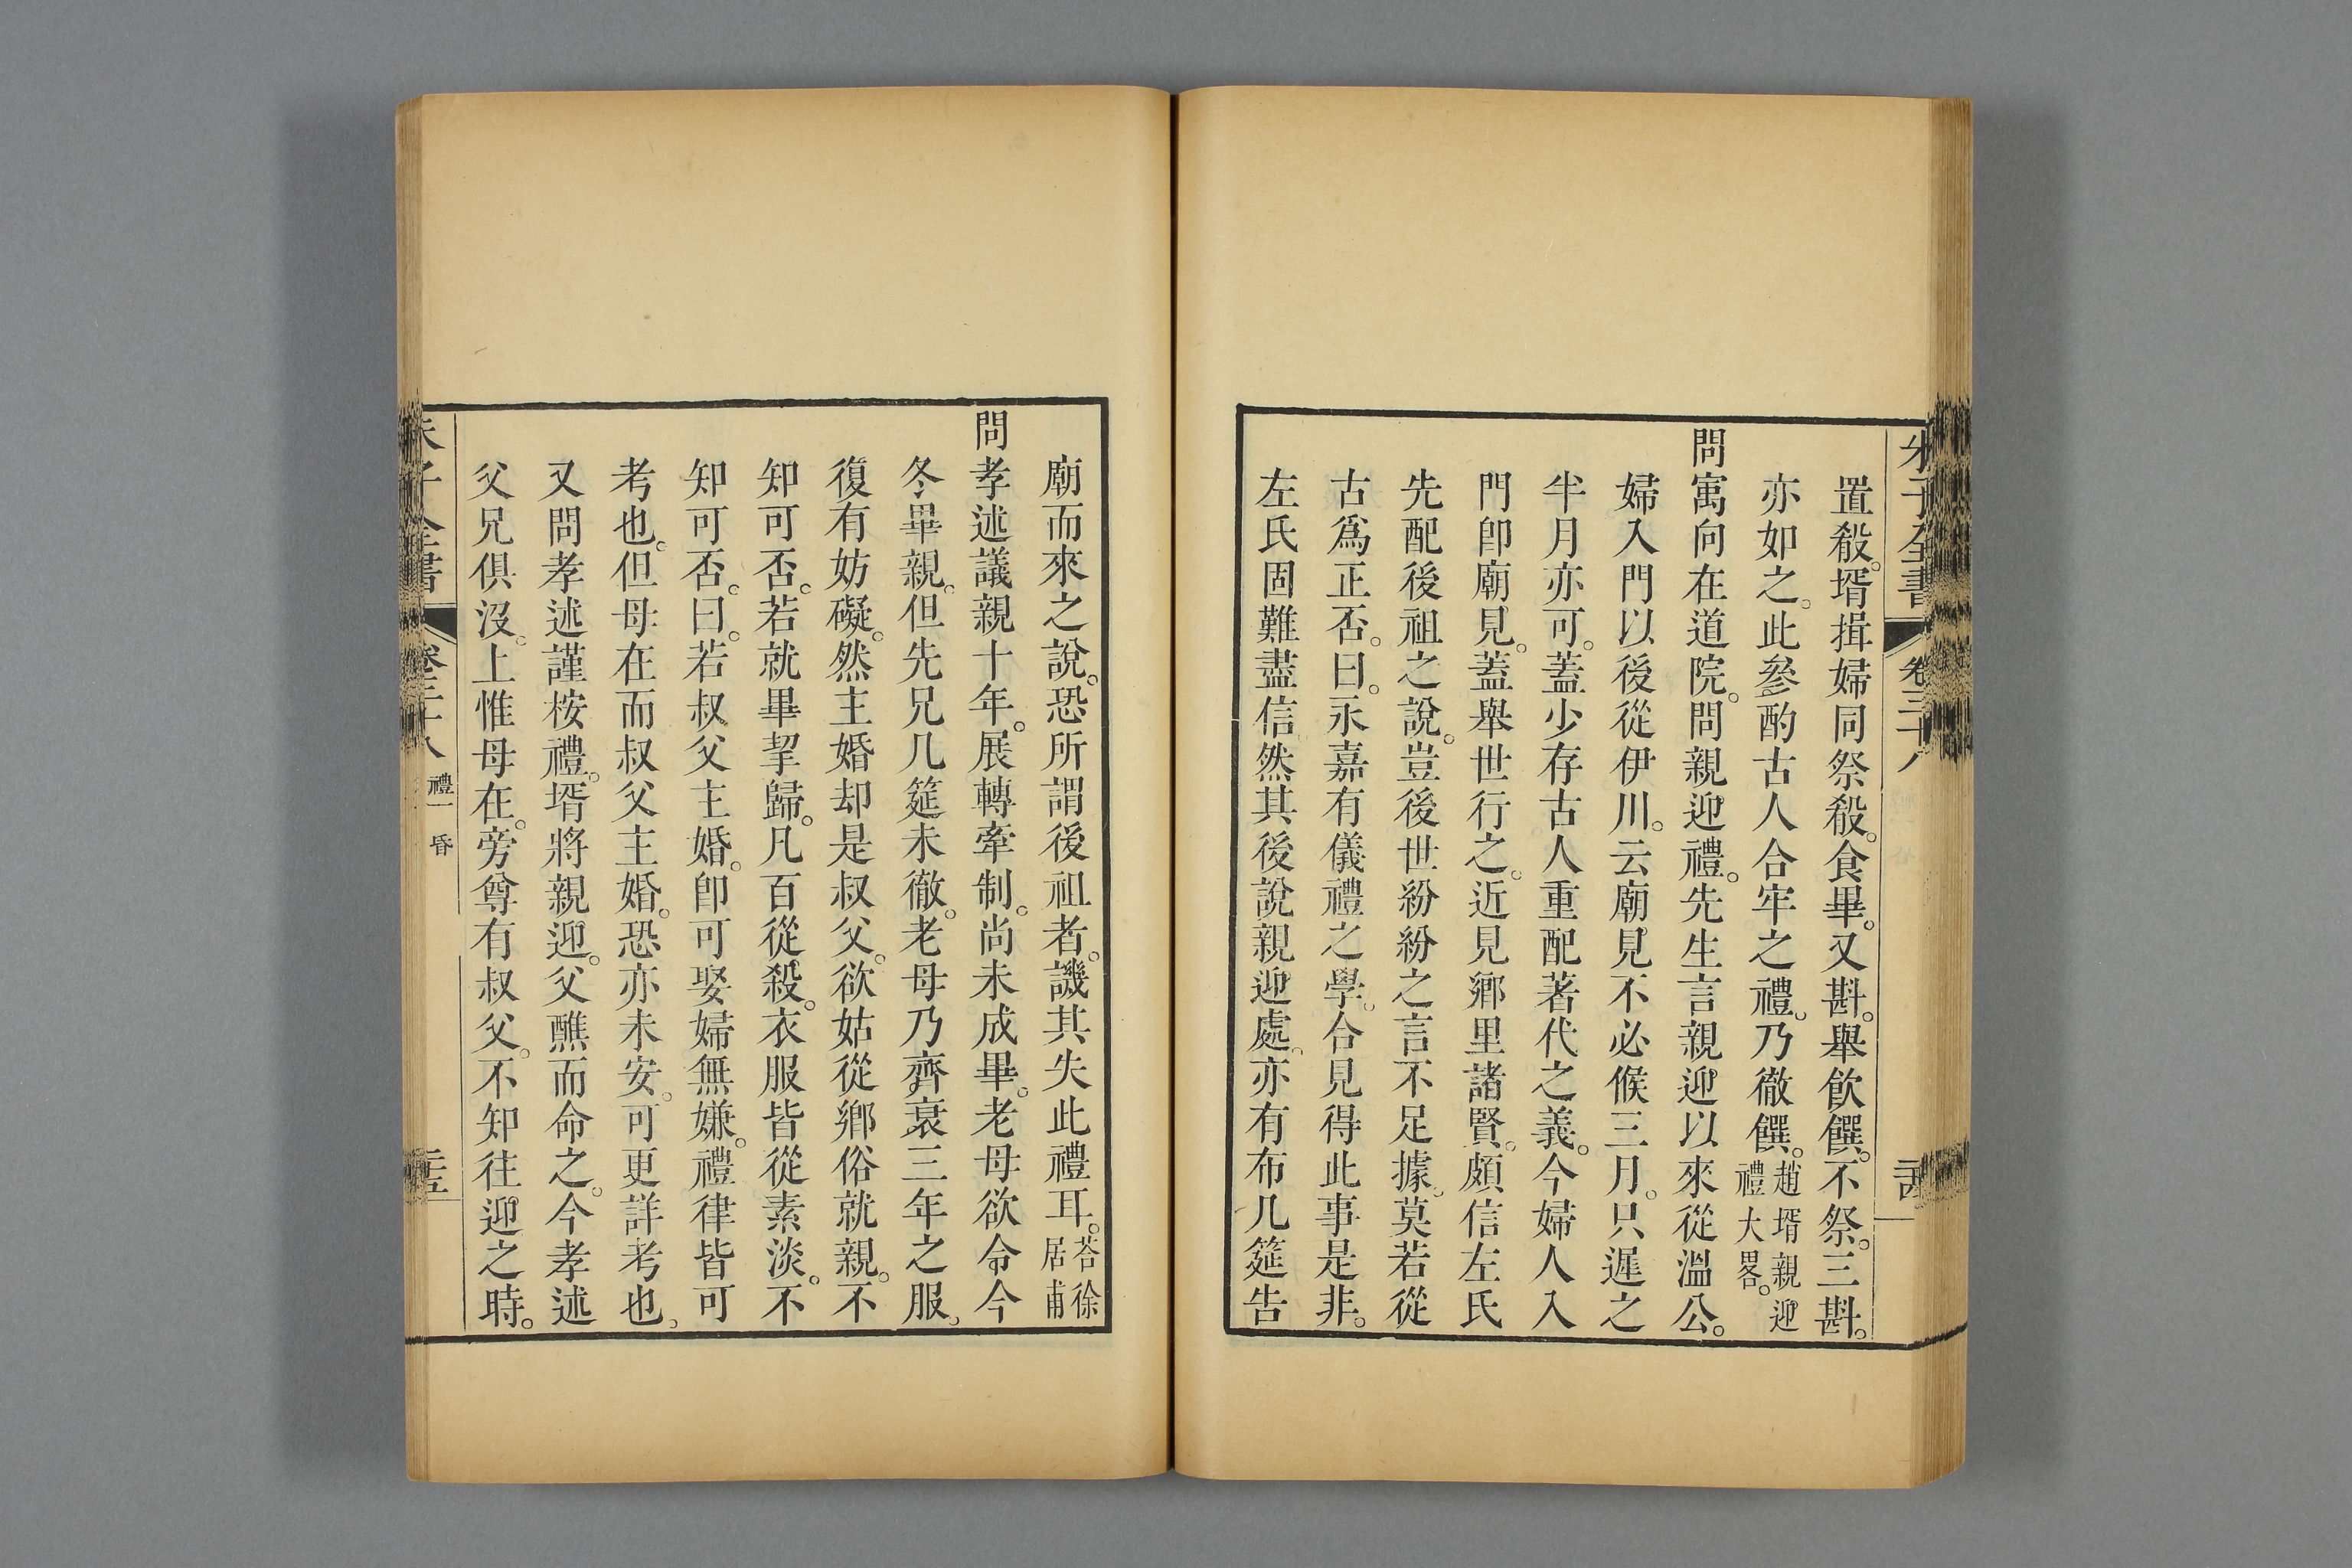 朱子全書 卷三十八 三十四
置殽。壻揖婦同祭殽。食畢。又斟。舉飲饌。不祭。三斟。
亦如之。此參酌古人合牢之禮。乃徹饌。趙壻親迎禮大畧。
問寓向在道院。問親迎禮。先生言親迎以來從溫公。
婦入門以後從伊川。云廟見不必候三月。只遲之
半月亦可。蓋少存古人重配著代之義。今婦人入
門卽廟見。蓋舉世行之。近見鄉里諸賢。頗信左氏
先配後祖之說。豈後世紛紛之言不足據。莫若從
古爲正否。曰。永嘉有儀禮之學。合見得此事是非。
左氏固難盡信。然其後說親迎處。亦有布几筵告
廟而來之說。恐所謂後祖者。譏其失此禮耳。荅徐居甫
問孝述議親十年。展轉牽制。尚未成畢。老母欲令今
冬畢親。但先兄几筵未徹。老母乃齊衰三年之服。
復有妨礙。然主婚却是叔父。欲姑從鄉俗就親。不
知可否。若就畢挈歸。凡百從殺。衣服皆從素淡。不
知可否。曰。若叔父主婚。卽可娶婦無嫌。禮律皆可
考也。但母在而叔父主婚。恐亦未安。可更詳考也。
又問孝述謹桉禮。壻將親迎。父醮而命之。今孝述
父兄俱沒。上惟母在。旁尊有叔父。不知往迎之時。
朱子全書 卷三十八 禮一 昏 三十五